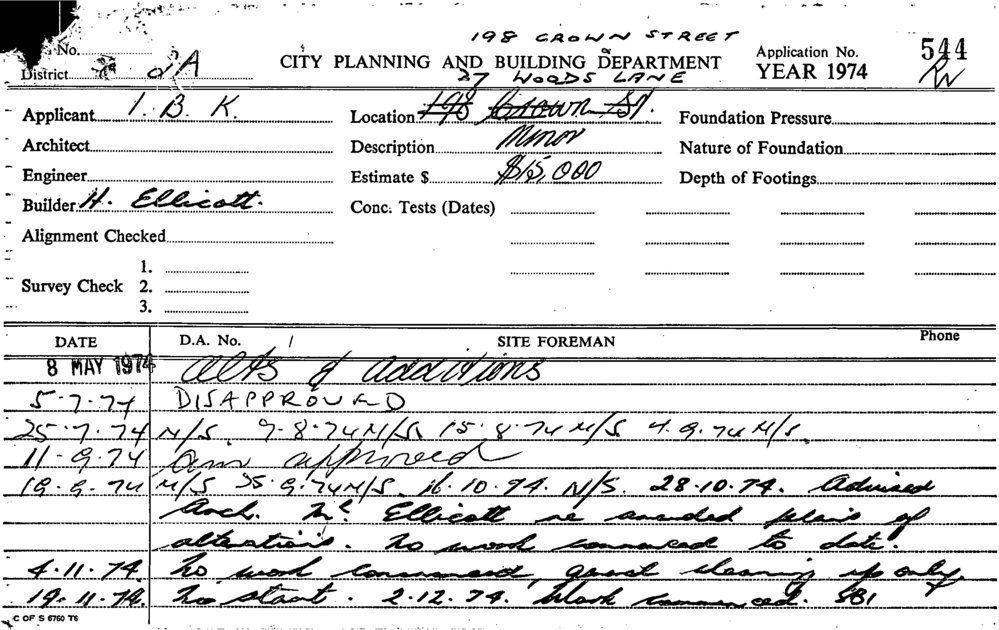 198 CROWN STREET
No.
District 2A
CITY PLANNING AND BUILDING DEPARTMENT
27 WOODS LANE
Application No. 544
YEAR 1974
Applicant I. B. K.
Location 198 Crown St.
Foundation Pressure
Architect
Description Minor
Nature of Foundation
Engineer
Estimate $ $15,000
Depth of Footings
Builder H. Ellicott.
Conc. Tests (Dates)
Alignment Checked
Survey Check
1.
2.
3.
DATE D.A. No. / SITE FOREMAN Phone
8 MAY 1974 alts & additions
5-7-74 DISAPPROVED
25.7.74 N/S. 9-8-74 N/S. 15.8.74 N/S 4.9.74 N/S.
11-9.74 am approved
19.9.74 N/S 25.9.74 N/S. 16.10.74. N/S. 28.10.74. Advised
Arch. Mr. Ellicott re amended plans of
alterations. No work commenced to date.
4.11.74. No work commenced, cleaning up only.
19.11.74. No start. 2.12.74. Work commenced. SBI
C OF S 6760 T6